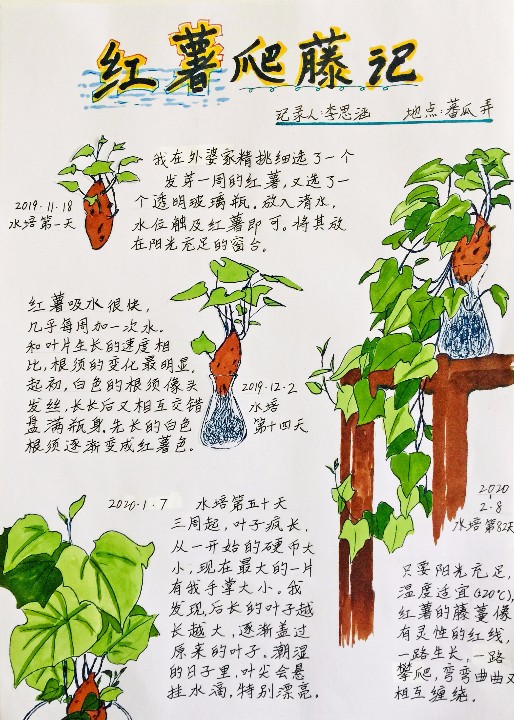 红薯爬藤记
记录人:李思涵 地点:蕃瓜弄
我在外婆家精挑细选了一个
发芽一周的红薯,又选了一
个透明玻璃瓶。放入清水,
水位触及红薯即可。将其放
在阳光充足的窗台。
2019·11·18
水培第一天
红薯吸水很快,
几乎每周加一次水。
和叶片生长的速度相
比,根须的变化最明显,
起初,白色的根须像头
发丝,长长后又相互交错
盘满瓶身。先长的白色
根须逐渐变成红薯色。
2019·12·2
水培
第十四天
2020·1·7 水培第五十天
三周起,叶子疯长,
从一开始的硬币大
小,现在最大的一片
有我手掌大小。我
发现,后长的叶子越
长越大,逐渐盖过
原来的叶子。潮湿
的日子里,叶尖会悬
挂水滴,特别漂亮。
2020
2·8
水培第82天
只要阳光充足,
温度适宜(≥20℃),
红薯的藤蔓像
有灵性的红线,
一路生长,一路
攀爬,弯弯曲曲又
相互缠绕。